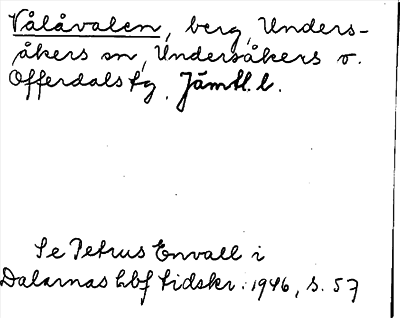 Vålåvalen, berg, Unders-
åkers sn, Undersåkers o.
Offerdals tg, Jämtl. l.
Se Petrus Envall i
Dalarnas hbf tidskr. 1946, s. 57